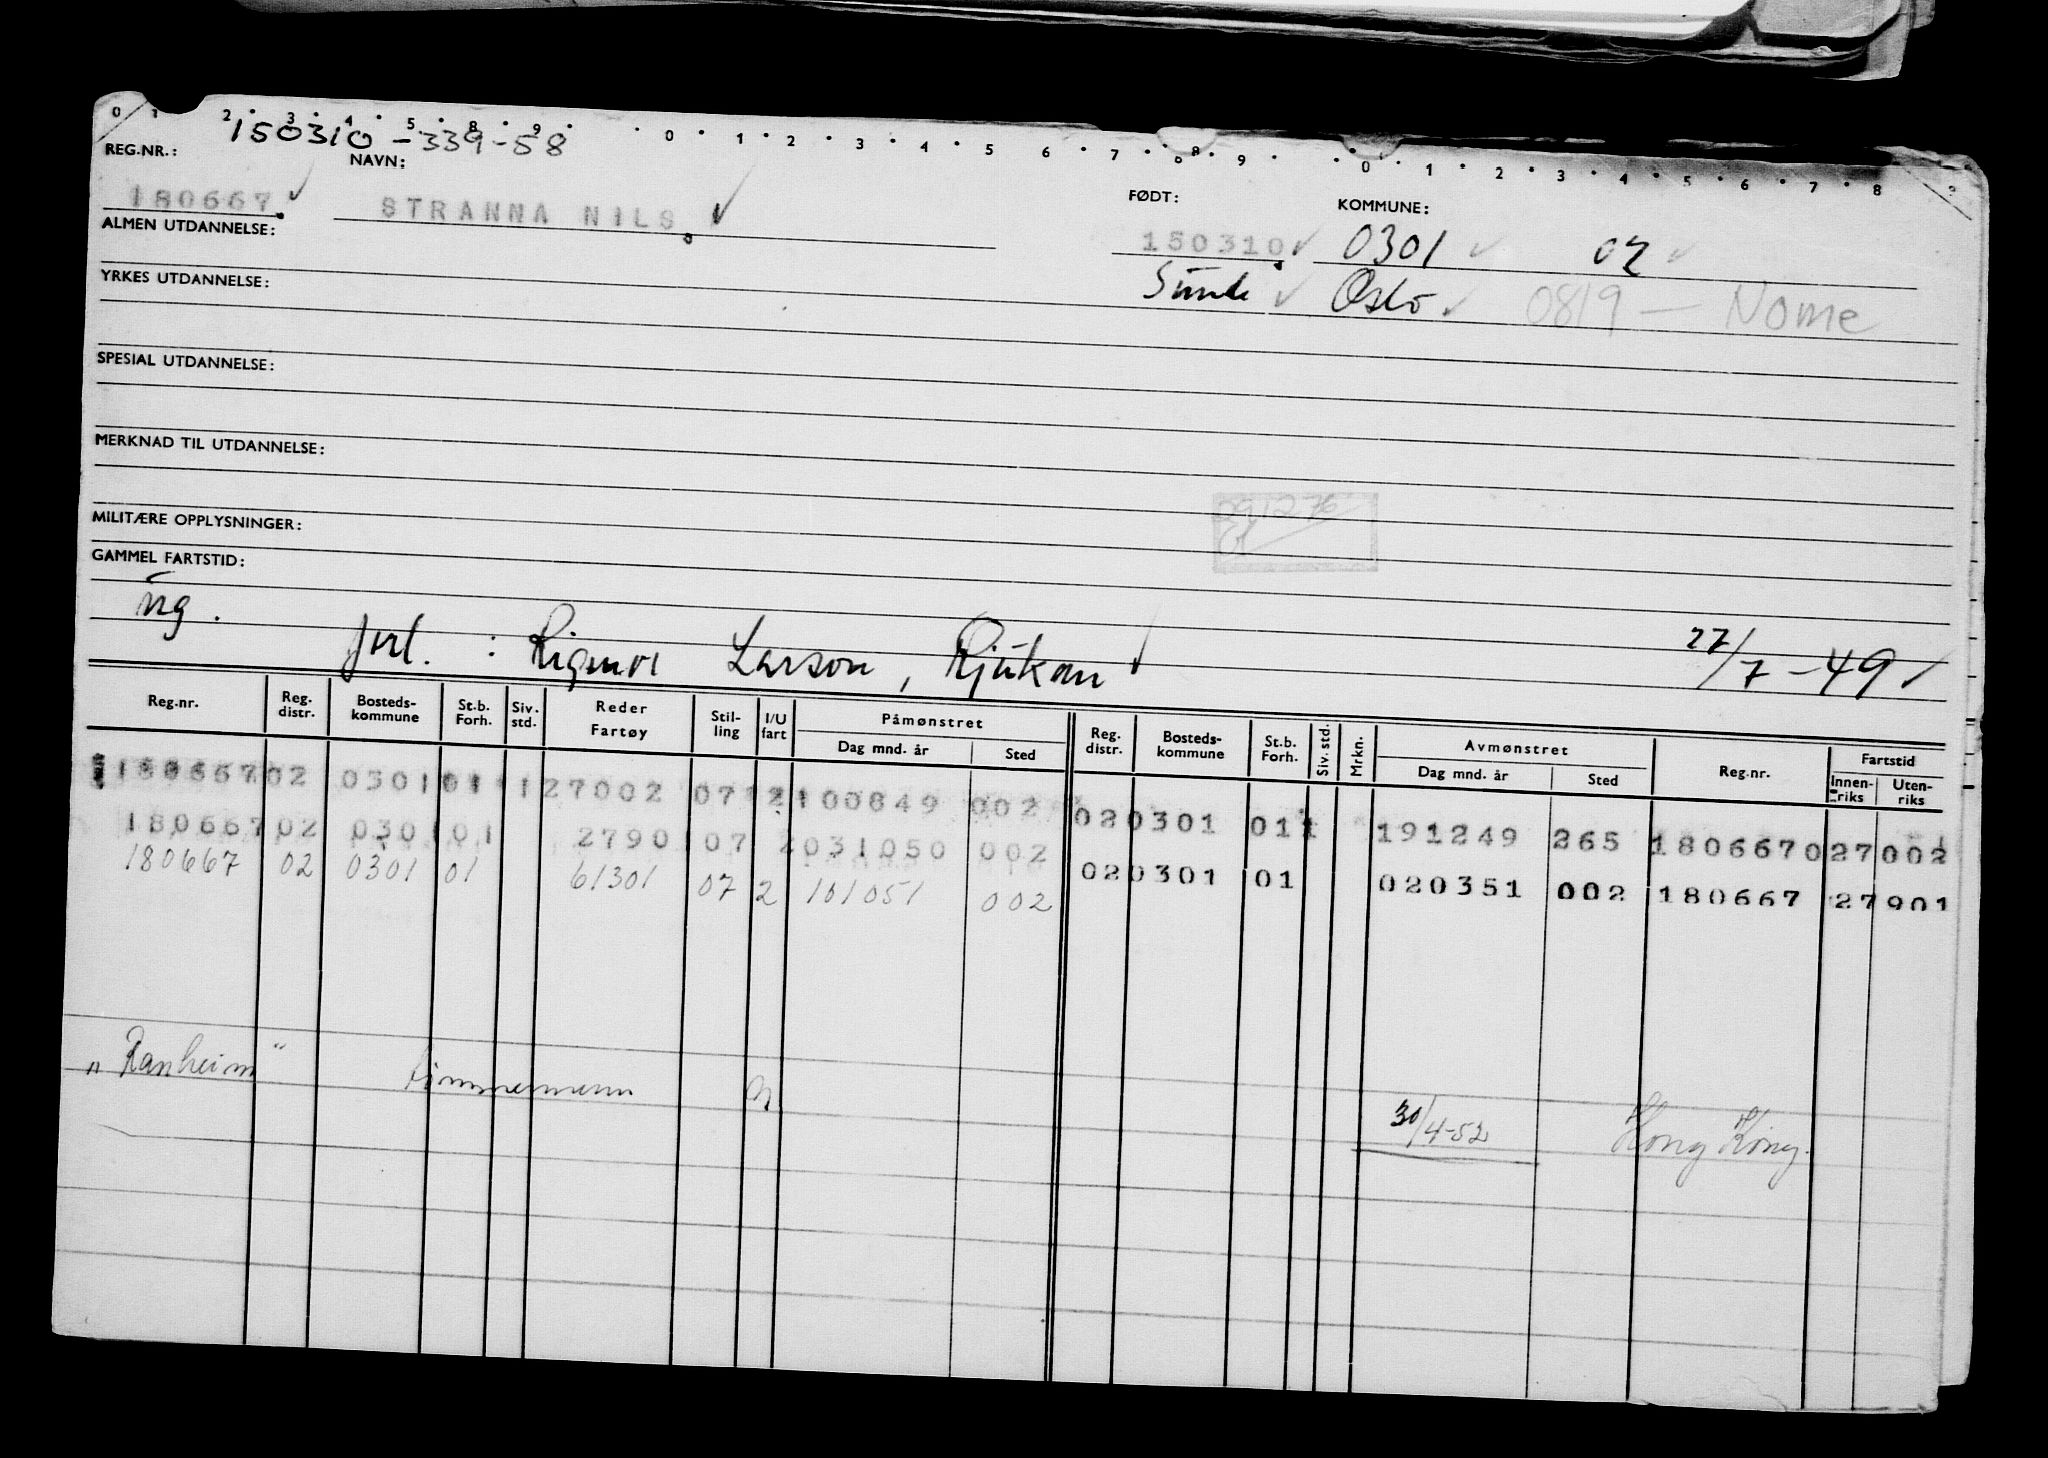 0 1 2 3 4 5 8 9 0 1 2 3 4 5 6 7 8 9 0 1 2 3 4 5 6 7 8 9
150310-339-58
REG.NR.: NAVN: FØDT: KOMMUNE:
180667 STRANNA NILS 150310 0301 02
ALMEN UTDANNELSE:
Oslo 0819 — Nome
YRKES UTDANNELSE:
SPESIAL UTDANNELSE:
MERKNAD TIL UTDANNELSE:
291276
MILITÆRE OPPLYSNINGER:
GAMMEL FARTSTID:
ug.
forl. : Rigmor Larson, Rjukan 27/7-49
Reg.nr. Reg. distr. Bosteds-kommune St.b. Forh. Siv. std. Reder Fartøy Stil-ling I/U fart Påmønstret Dag mnd. år Sted Reg. distr. Bosteds-kommune St.b. Forh. Siv. std. Mrkn. Avmønstret Dag mnd. år Sted Reg.nr. Fartstid Innen-riks Uten-riks
180667 02 0301 01 1 27002 07 2 100849 002 02 0301 01 1 191249 265 180667 027 002
180667 02 0301 01 2790 07 2 031050 002 02 0301 01 020351 002 180667 27 901
180667 02 0301 01 61301 07 2 101051 002
"Ranheim" timmermann 30/4-52 Hong Kong.